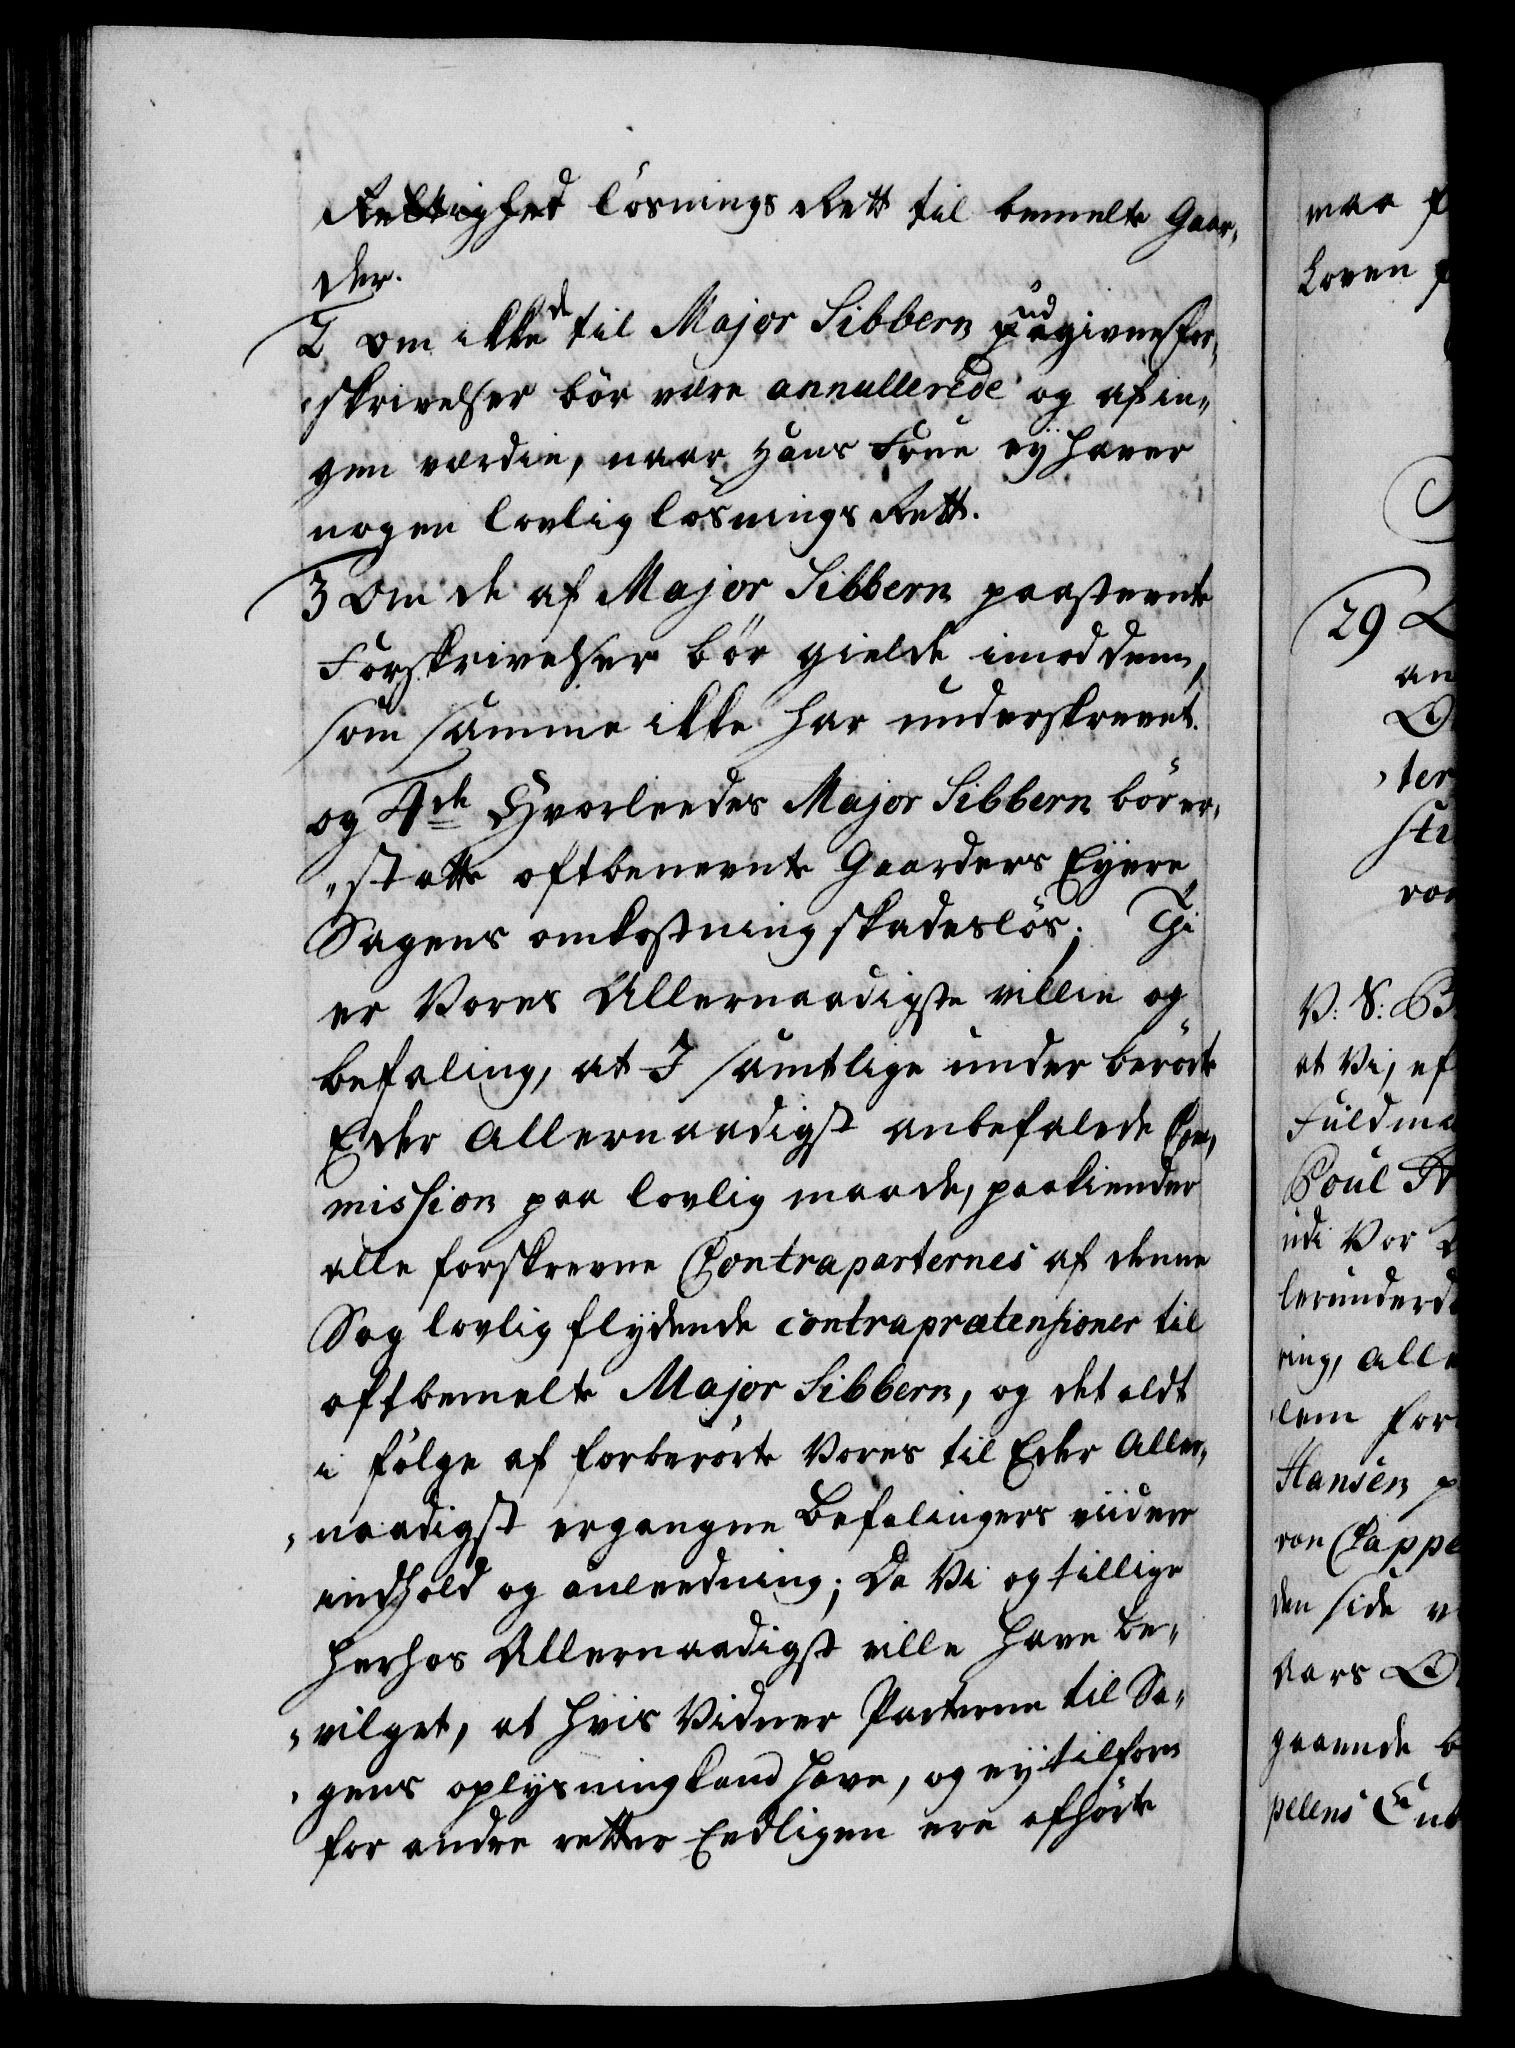 Rettighed lösnings Rett til bemelte Gaar,
der.
2 Om ikke de til Major Sibbern udgivne for,
skrivelser bör være annullerede og af in,,
gen værdie, naar Hans Frue ey haver
nogen lovlig lösnings Rett.
3 Om de af Major Sibbern paastevnte
Forskrivelser bör gielde imod dem,
som samme ikke har underskrevet.
og 4de Hvorleedes Major Sibbern bör er,
,,statte oftbenevnte Gaarders Eyere
Sagens omkostning skadeslös; Thi
er Vores Allernaadigste villie og
befaling, at I samtlige under berörte
Eder Allernaadigst anbefalede Com,
mission paa lovlig maade, paakiender
alle forskrevne Contraparternes af denne
Sag lovlig flydende contraprætensioner til
oftbemelte Major Sibbern, og det aldt
i fölge af forberörte Vores til Eder Aller,
,naadigst ergangne Befalingers viidere
indhold og anleedning; Da Vi og tillige
herhos Allernaadigst ville have be,,
,,vilget, at hvis Vidner Parterne til Sa,,
,gens oplysning kand have, og ey tilforn
for andre retter Endligen ere afhörte
maa f
Loven
29 L
an
O
,ter
sti
von
V: S: B
at Vi, ef
Fuldma
Poul H
udi Vor
lerunderd
ring, Alle
lem for
Hansen p
von Cappe
den side v
Aars O
gaaende b
pelens Enk